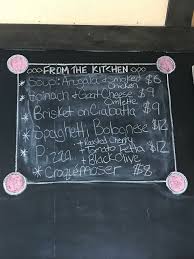 FROM THE KITCHEN
* Soup: Arugula + Smoked $6
Chicken
* Spinach + Goat Cheese $9
Omlette
* Brisket on Ciabatta $9
* Spaghetti Bolognese $12
* Pizza + Roasted Cherry
Tomato Fetta $12
+ Black Olive
* Croque Moser $8